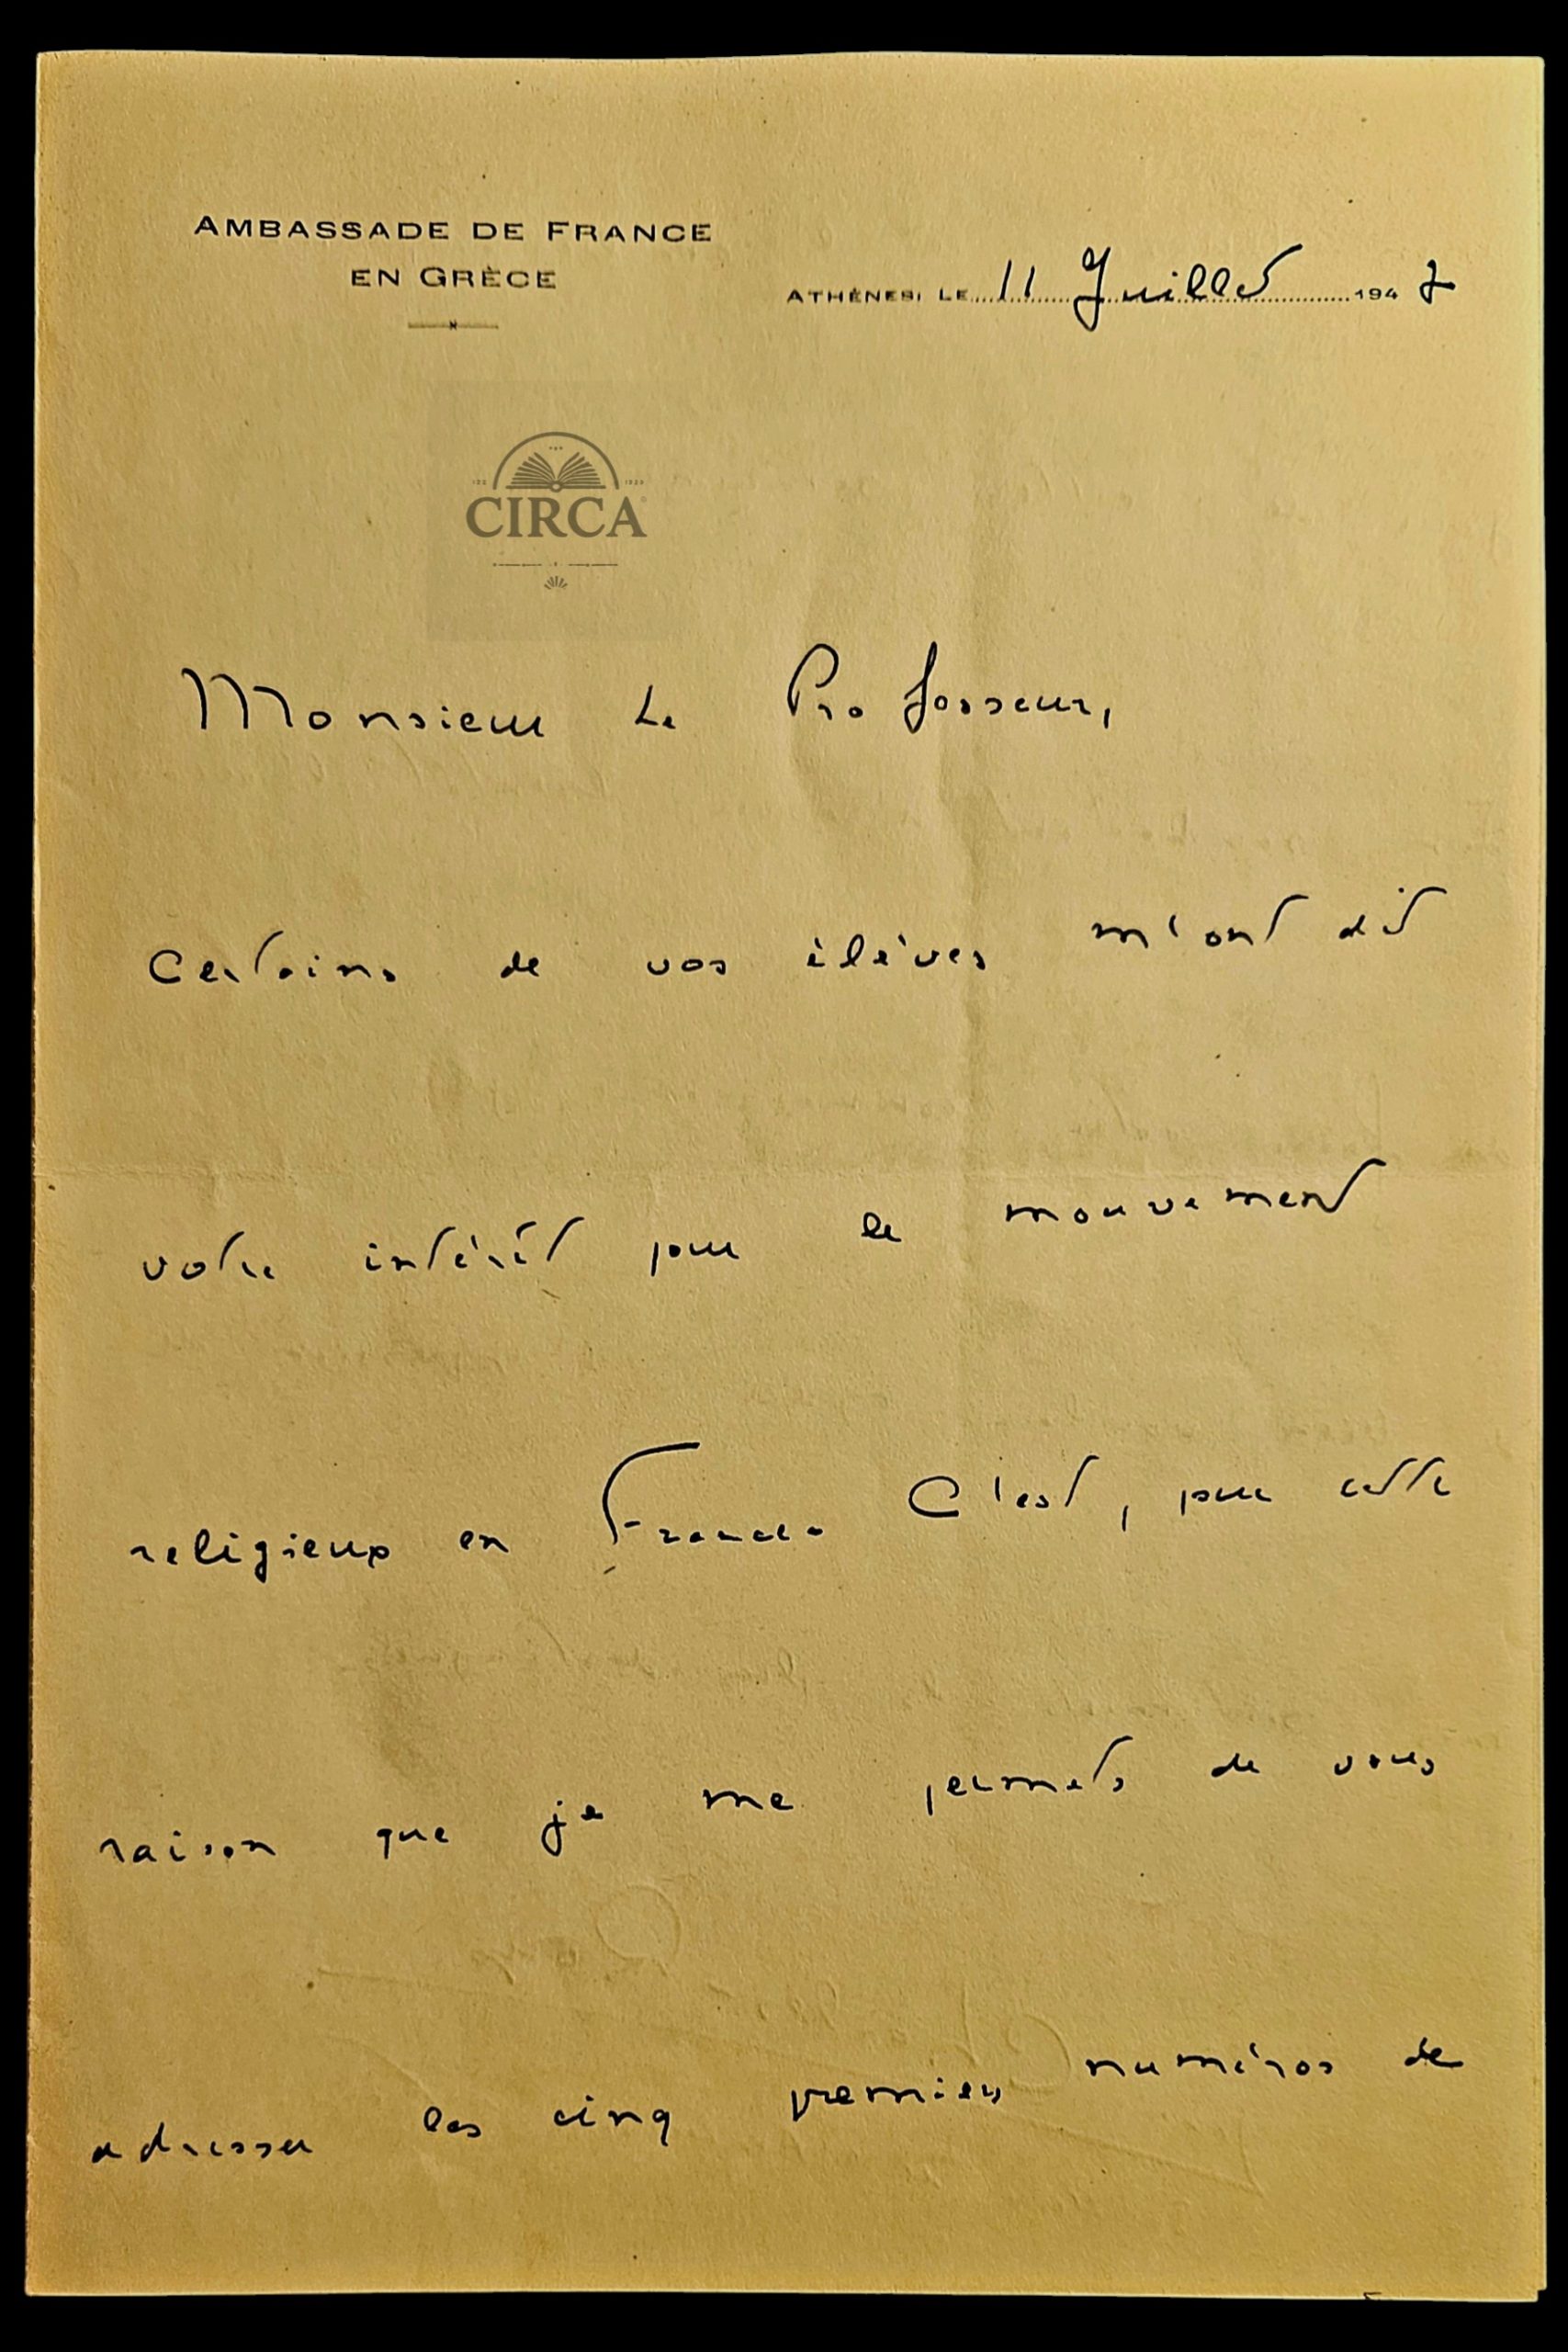 AMBASSADE DE FRANCE
EN GRÈCE
ATHÈNES, LE 11 Juillet 1947
CIRCA
Monsieur Le Professeur,
Certains de vos élèves m'ont dit
votre intérêt pour le mouvement
religieux en France. C'est, pour cette
raison que je me permets de vous
adresser les cinq premiers numéros de